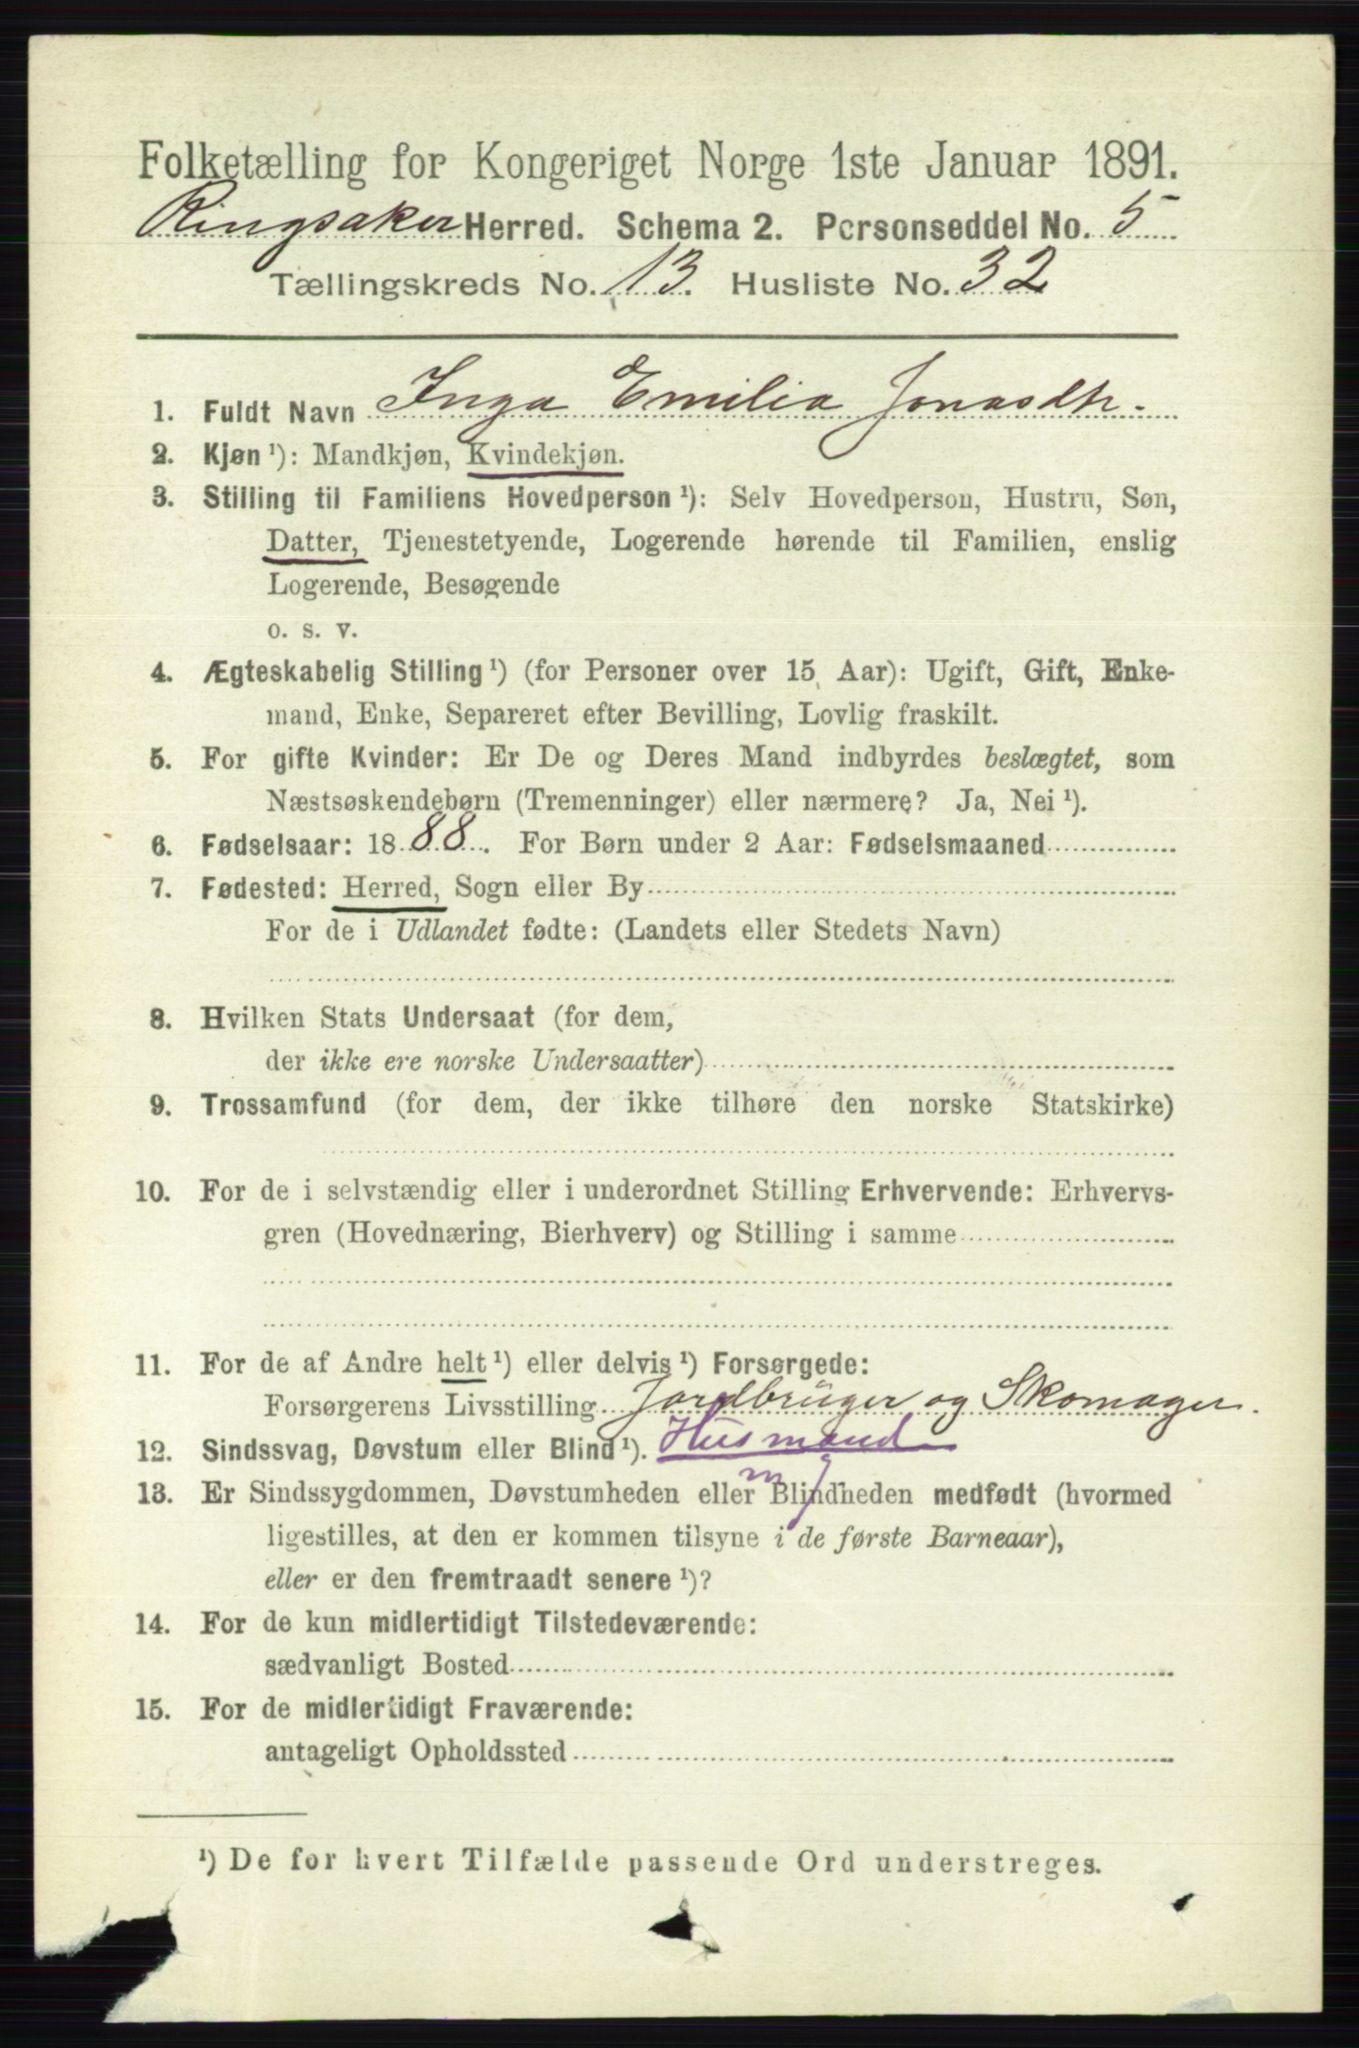 Folketælling for Kongeriget Norge 1ste Januar 1891.
Ringsaker Herred. Schema 2. Personseddel No. 5
Tællingskreds No. 13. Husliste No. 32
1. Fuldt Navn Inga Emilia Jonasdtr.
2. Kjøn ¹): Mandkjøn, Kvindekjøn.
3. Stilling til Familiens Hovedperson ¹): Selv Hovedperson, Hustru, Søn,
Datter, Tjenestetyende, Logerende hørende til Familien, enslig
Logerende, Besøgende
o. s. v.
4. Ægteskabelig Stilling ¹) (for Personer over 15 Aar): Ugift, Gift, Enke-
mand, Enke, Separeret efter Bevilling, Lovlig fraskilt.
5. For gifte Kvinder: Er De og Deres Mand indbyrdes beslægtet, som
Næstsøskendebørn (Tremenninger) eller nærmere? Ja, Nei ¹).
6. Fødselsaar: 1888. For Børn under 2 Aar: Fødselsmaaned
7. Fødested: Herred, Sogn eller By
For de i Udlandet fødte: (Landets eller Stedets Navn)
8. Hvilken Stats Undersaat (for dem,
der ikke ere norske Undersaatter)
9. Trossamfund (for dem, der ikke tilhøre den norske Statskirke)
10. For de i selvstændig eller i underordnet Stilling Erhvervende: Erhvervs-
gren (Hovednæring, Bierhverv) og Stilling i samme
11. For de af Andre helt ¹) eller delvis ¹) Forsørgede:
Forsørgerens Livsstilling Jordbrüger og Skomager.
12. Sindssvag, Døvstum eller Blind ¹). Husmand
m j
13. Er Sindssygdommen, Døvstumheden eller Blindheden medfødt (hvormed
ligestilles, at den er kommen tilsyne i de første Barneaar),
eller er den fremtraadt senere ¹)?
14. For de kun midlertidigt Tilstedeværende:
sædvanligt Bosted
15. For de midlertidigt Fraværende:
antageligt Opholdssted
¹) De for hvert Tilfælde passende Ord understreges.